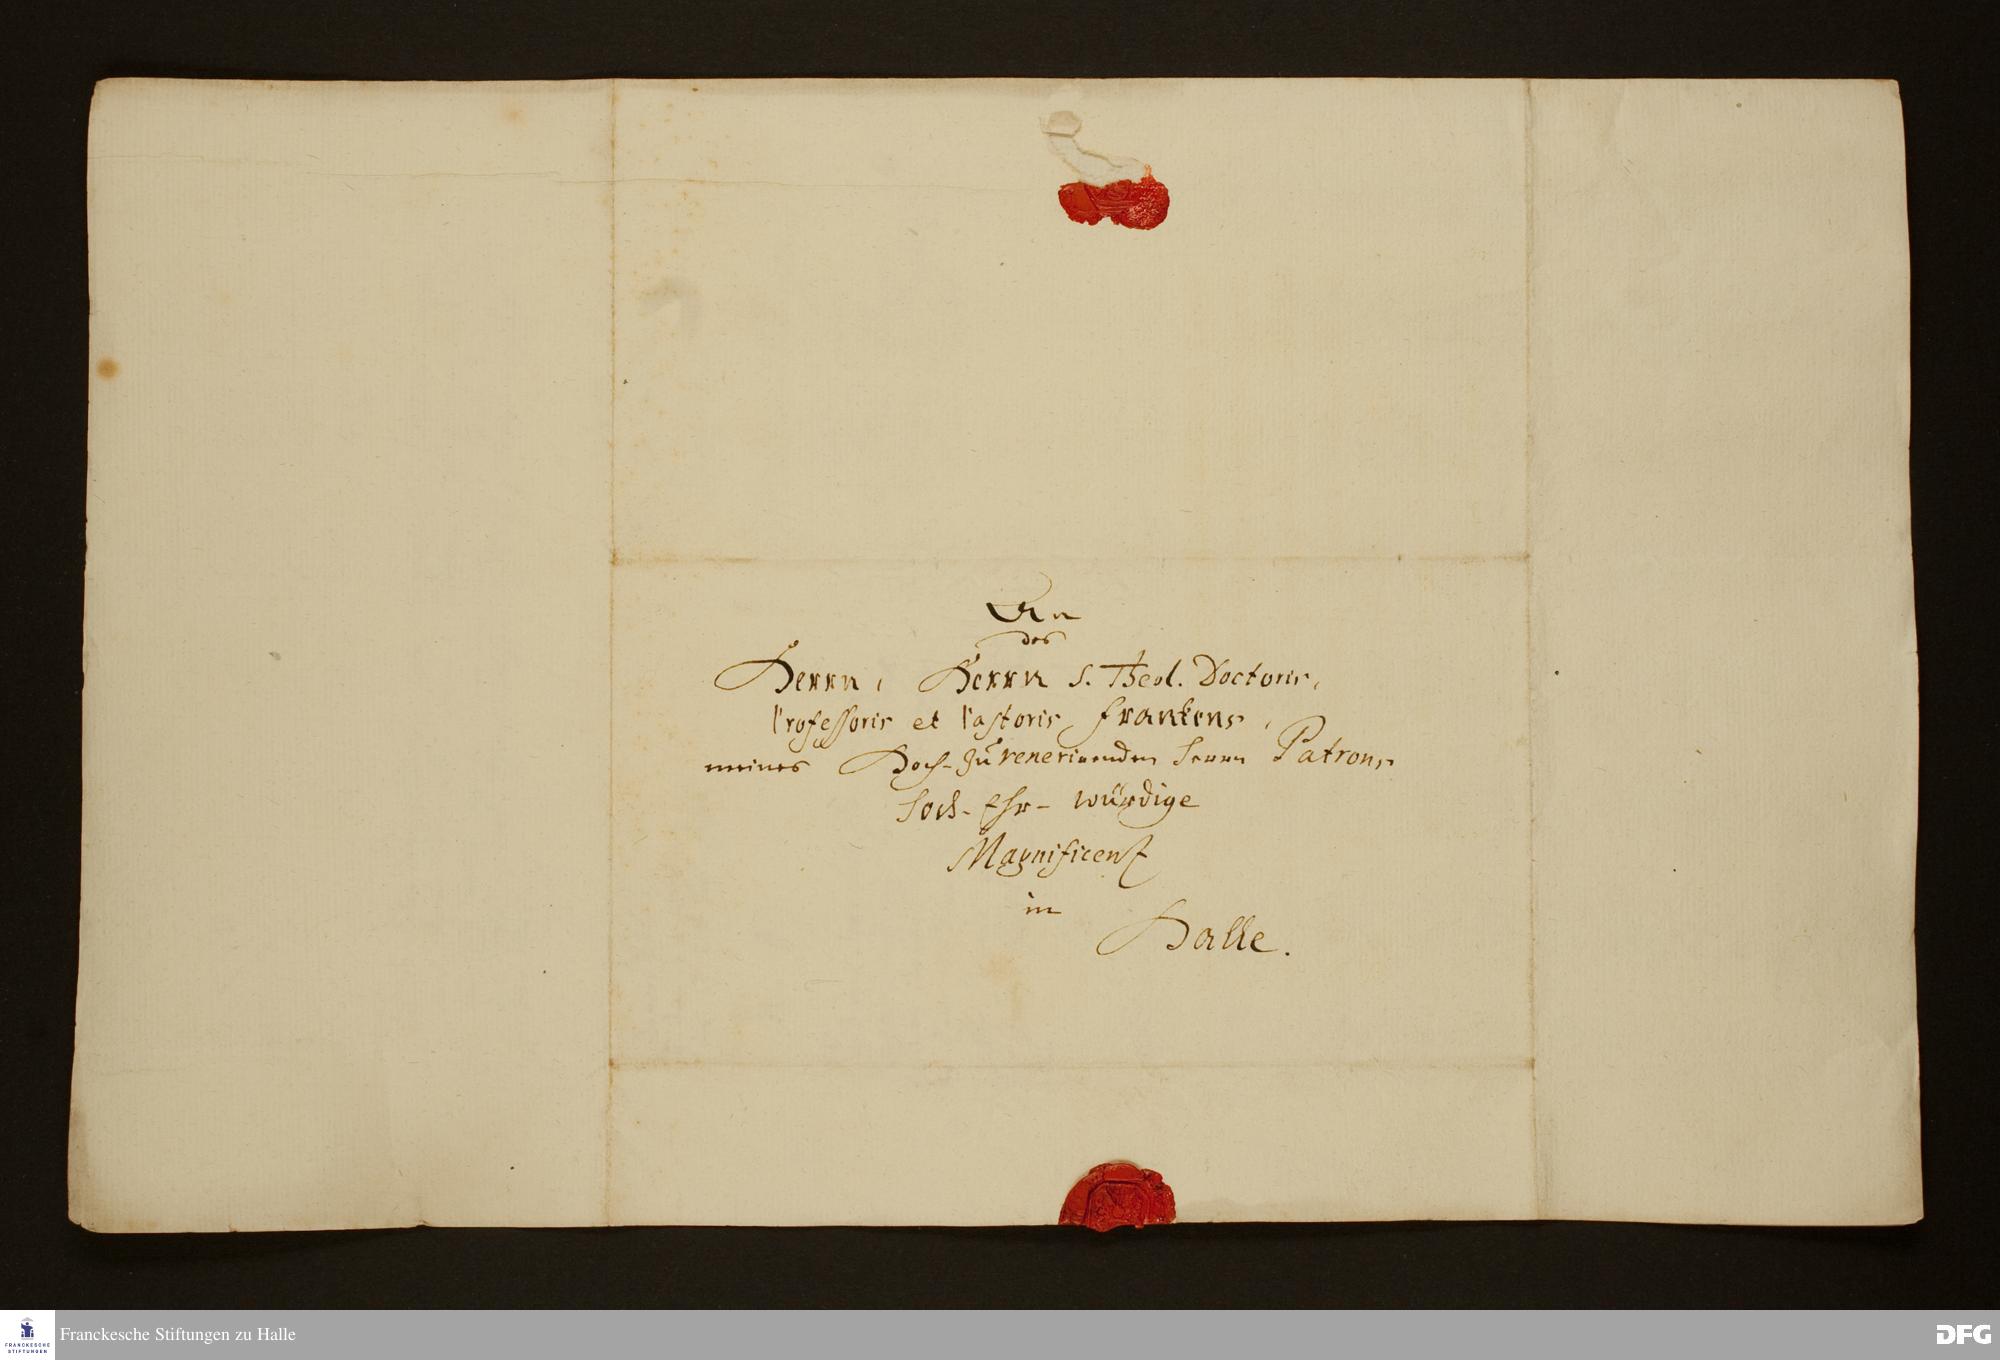 An
des
Herrn, Herrn S. Theol. Doctoris,
Professoris et Pastoris Frankens,
meines Hoch-zu venerirenden Herrn Patrons
Hoch-Ehr-würdige
Magnificentz
in
Halle.
FRANCKESCHE
STIFTUNGEN
Franckesche Stiftungen zu Halle
DFG